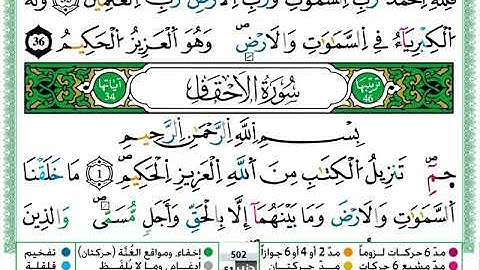 فَلِلَّهِ الْحَمْدُ رَبِّ السَّمَٰوَٰتِ وَرَبِّ الْأَرْضِ رَبِّ الْعَٰلَمِينَ 35 وَلَهُ
الْكِبْرِيَاءُ فِي السَّمَٰوَٰتِ وَالْأَرْضِ وَهُوَ الْعَزِيزُ الْحَكِيمُ 36
ترتيبها 46 سُورَةُ الْأَحْقَافِ آياتها 34
بِسْمِ اللَّهِ الرَّحْمَٰنِ الرَّحِيمِ
حمٓ تَنزِيلُ الْكِتَٰبِ مِنَ اللَّهِ الْعَزِيزِ الْحَكِيمِ 1 مَا خَلَقْنَا
السَّمَٰوَٰتِ وَالْأَرْضَ وَمَا بَيْنَهُمَا إِلَّا بِالْحَقِّ وَأَجَلٍ مُّسَمًّى وَالَّذِينَ
مدّ 6 حركات لزوماً مدّ 2 أو 4 أو 6 جوازاً 502 إخفاء، ومواقع الغُنَّة (حركتان) تفخيم
مدّ مشبع 6 حركات مدّ حركتان إدغام، وما لا يُلفظ قلقلة